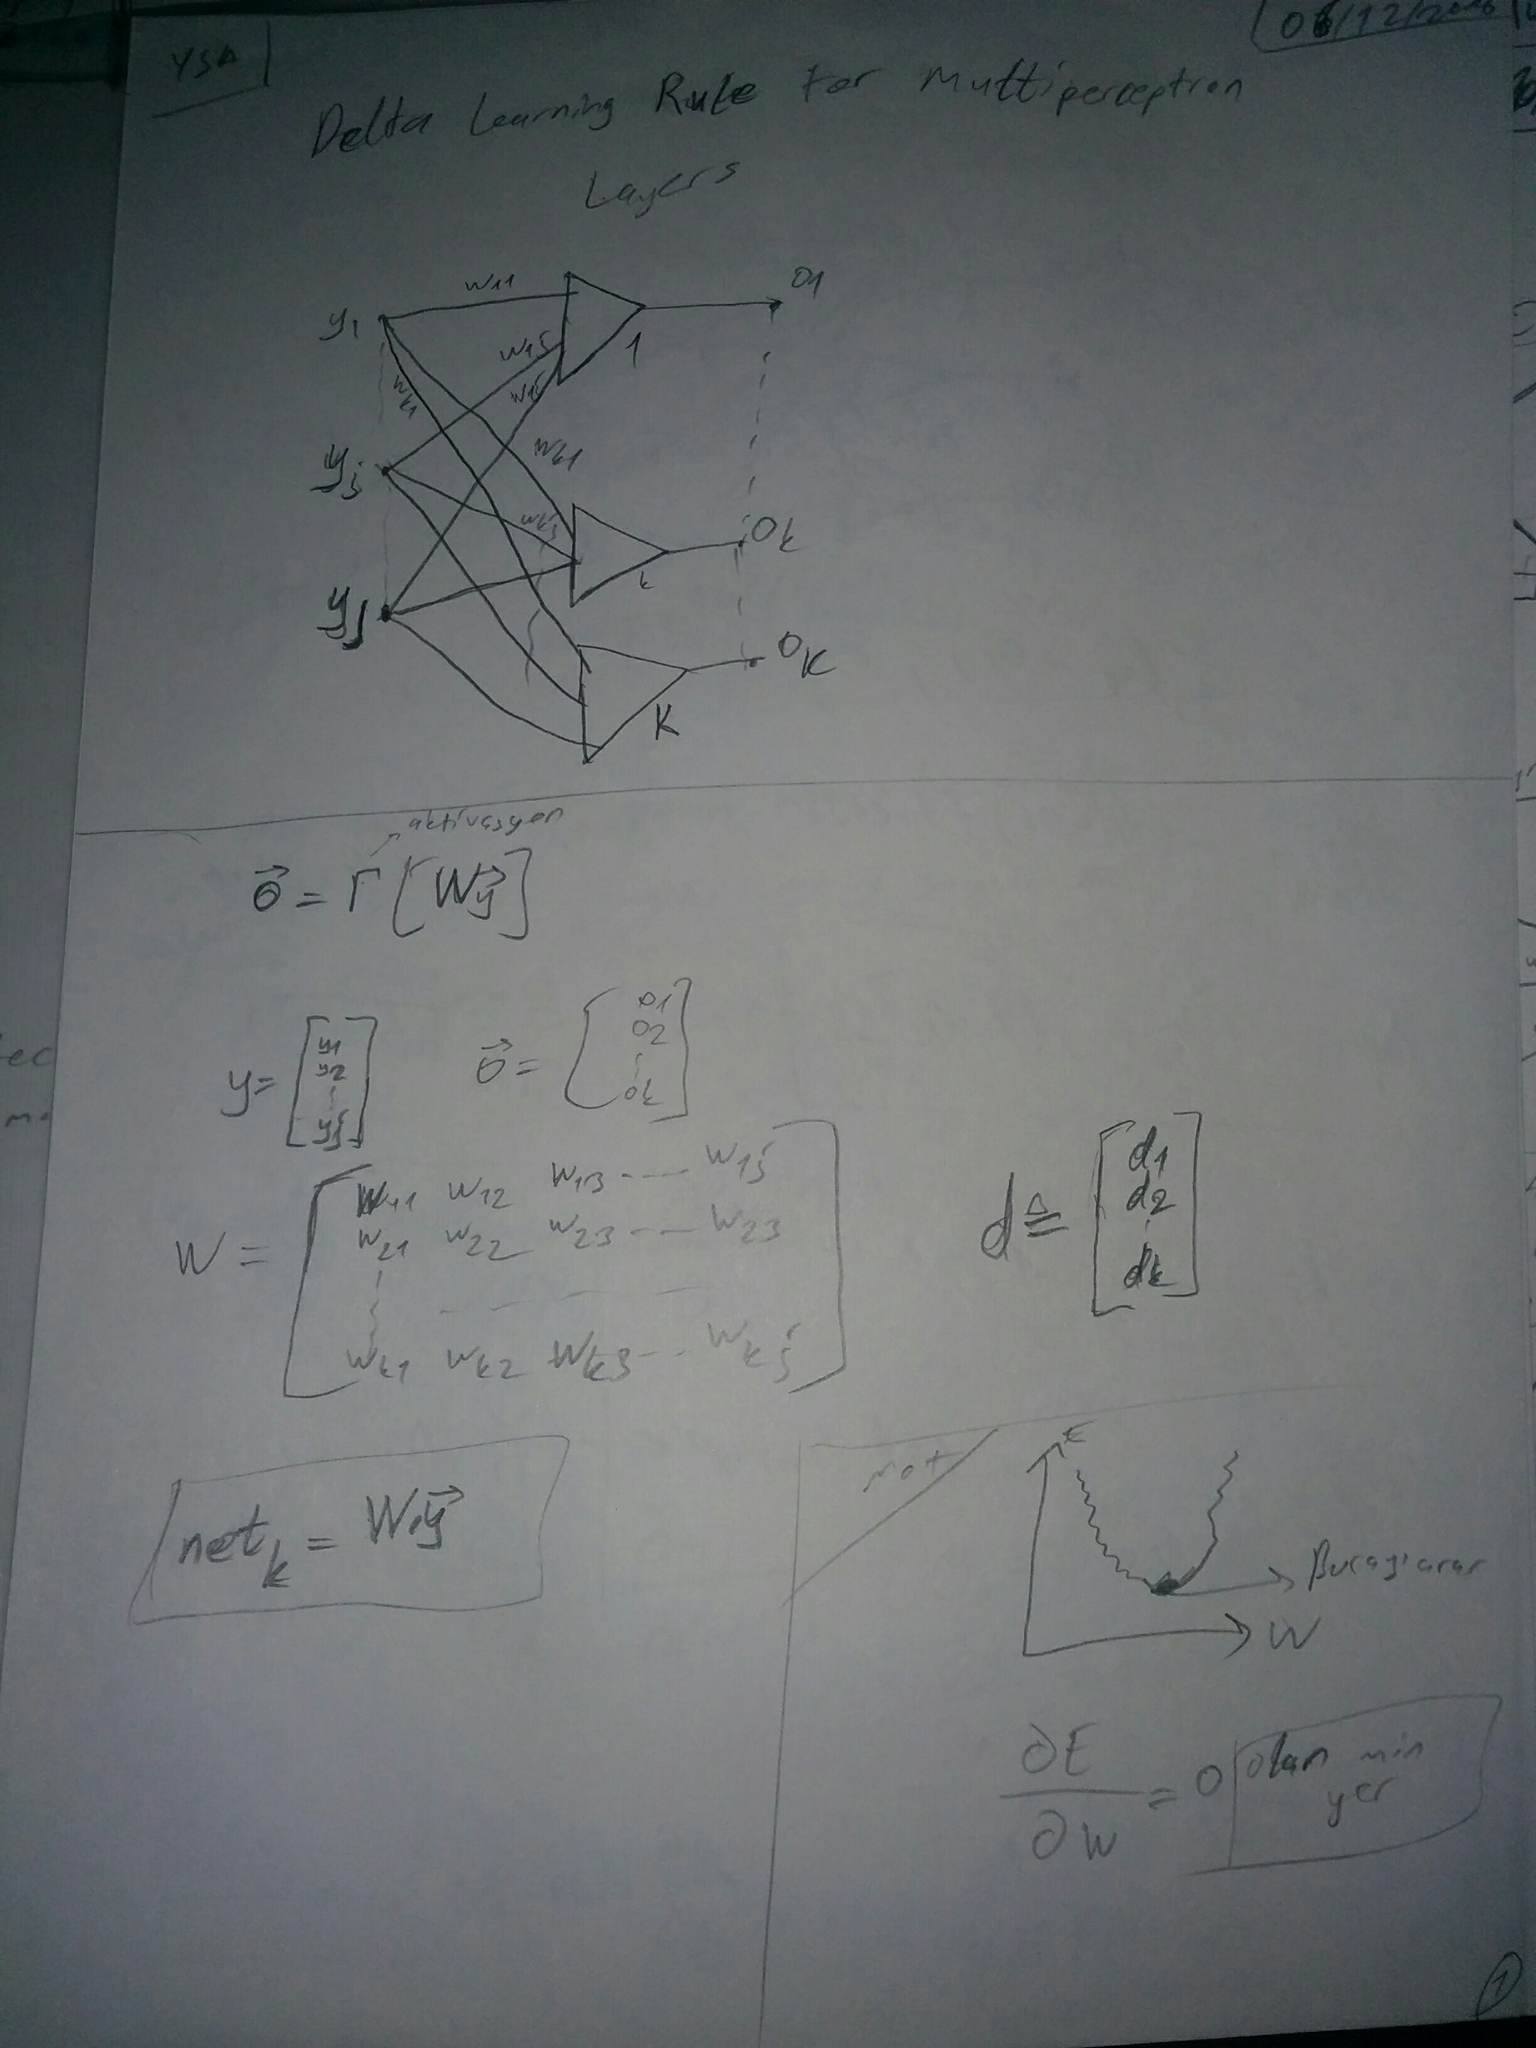 YSA
06/12/2016
Delta Learning Rule For Multiperceptron
Layers
y1 w11 1 o1
w1j
w1j
wk1
yj wk1
wkj k ok
yJ
K oK
aktivasyon
o⃗ = Γ [Wy⃗]
y = [y1 y2 yj] o⃗ = [o1 o2 ok]
W = [w11 w12 w13 ---- w1j
w21 w22 w23 --- w23
wk1 wk2 wk3 --- wkj]
d ≜ [d1 d2 dk]
netk = W.y⃗
not
E
Burayı arar
W
∂E/∂w = 0 olan min
yer
1